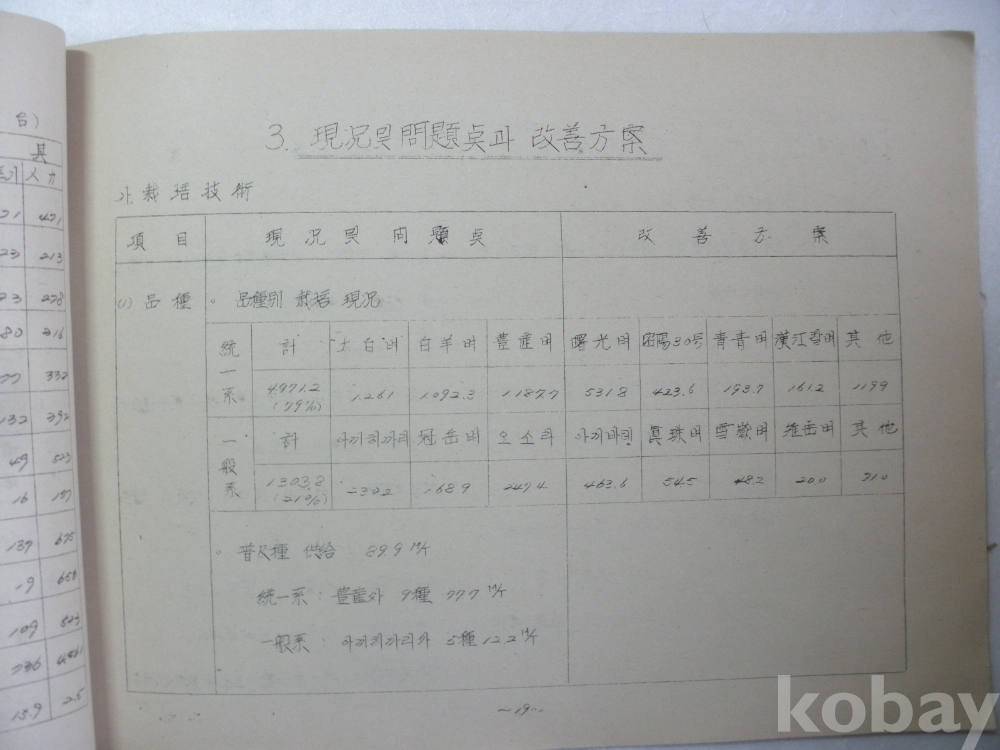 台)
具
人力
71 421
23 213
23 278
80 216
77 332
132 392
49 523
16 157
137 675
19 656
109 523
15.9 2.5
3. 現況및 問題點과 改善方案
가. 栽培技術
項目 現況 및 問題點 改善方案
(1) 品種 ◦ 品種別 栽培 現況
統一系 計 太白벼 白羊벼 豊産벼 曙光벼 昭陽30号 青青벼 漢江찰벼 其他
4971.2 (79%) 1261 1092.3 1187.7 531.8 423.6 193.7 161.2 119.9
一般系 計 아끼히까리 冠岳벼 오소라 아끼바레 眞珠벼 雪嶽벼 雉岳벼 其他
1303.8 (21%) 230.2 168.9 247.4 463.6 54.5 48.2 20.0 71.0
◦ 普及種 供給 89.9 M/T
統一系 : 豊産外 9種 77.7 M/T
一般系 : 아끼히까리外 5種 12.2 M/T
-19-
kobay